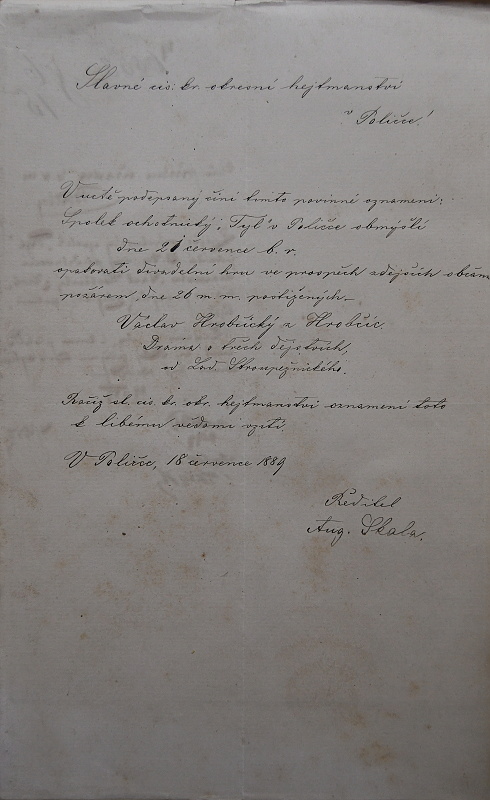 Slavné cis: kr. okresní hejtmanství
v Poličce!
V úctě podepsaný činí tímto povinné oznámení:
Spolek ochotnický „Tyl" v Poličce obmýšlí
dne 21 července b. r.
opětovati divadelní hru ve prospěch zdejších občan
požárem, dne 26 m. m. postižených. –
Václav Hrobčický z Hrobčic.
Drama o třech dějstvích,
od Lad. Stroupežnického.
Račiž sl. cis. kr. okr. hejtmanství oznámení toto
k libému vědomí vzíti.
V Poličce, 18 července 1889
Ředitel
Aug. Skala.